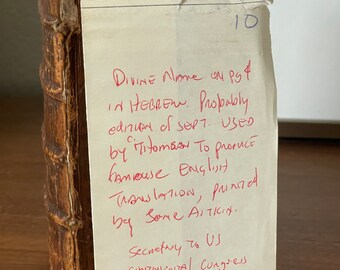 10
DIVINE NAME ON PG 4
IN HEBREW. Probably
edition of SEPT. USED
by C. THOMSON TO PRODUCE
FAMOUSE ENGLISH
TRANSLATION, PRINTED
by Same AITKIN.
Secretary TO US
Continental Congress